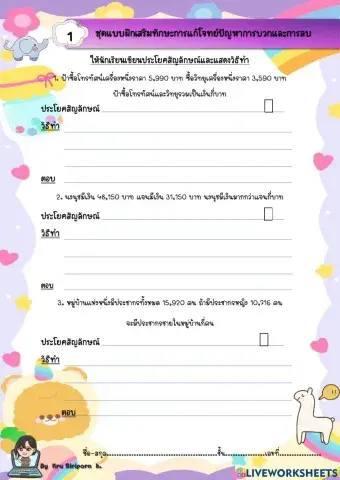 1
ชุดแบบฝึกเสริมทักษะการแก้โจทย์ปัญหาการบวกและการลบ
ให้นักเรียนเขียนประโยคสัญลักษณ์และแสดงวิธีทำ
1. ป้าซื้อโทรทัศน์เครื่องหนึ่งราคา 5,990 บาท ซื้อวิทยุเครื่องหนึ่งราคา 3,590 บาท
ป้าซื้อโทรทัศน์และวิทยุรวมเป็นเงินกี่บาท
ประโยคสัญลักษณ์
วิธีทำ
ตอบ
2. นงนุชมีเงิน 48,150 บาท แจนมีเงิน 31,150 บาท นงนุชมีเงินมากกว่าแจนกี่บาท
ประโยคสัญลักษณ์
วิธีทำ
ตอบ
3. หมู่บ้านแห่งหนึ่งมีประชากรทั้งหมด 15,920 คน ถ้ามีประชากรหญิง 10,716 คน
จะมีประชากรชายในหมู่บ้านกี่คน
ประโยคสัญลักษณ์
วิธีทำ
ตอบ
ชื่อ-สกุล ชั้น เลขที่
By Kru Siriporn k.
LIVEWORKSHEETS